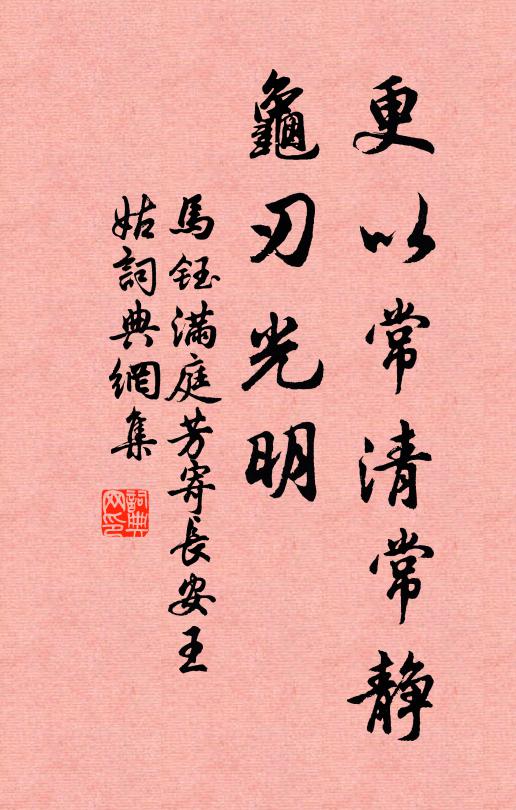 更以常清常静
龜刃光明
馬鈺滿庭芳寄長安王
姑詞典網集
詞典
网印